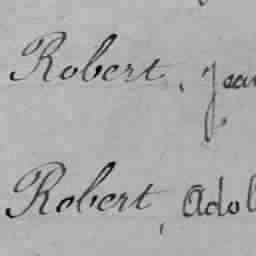 Robert, Jean
Robert, Adol